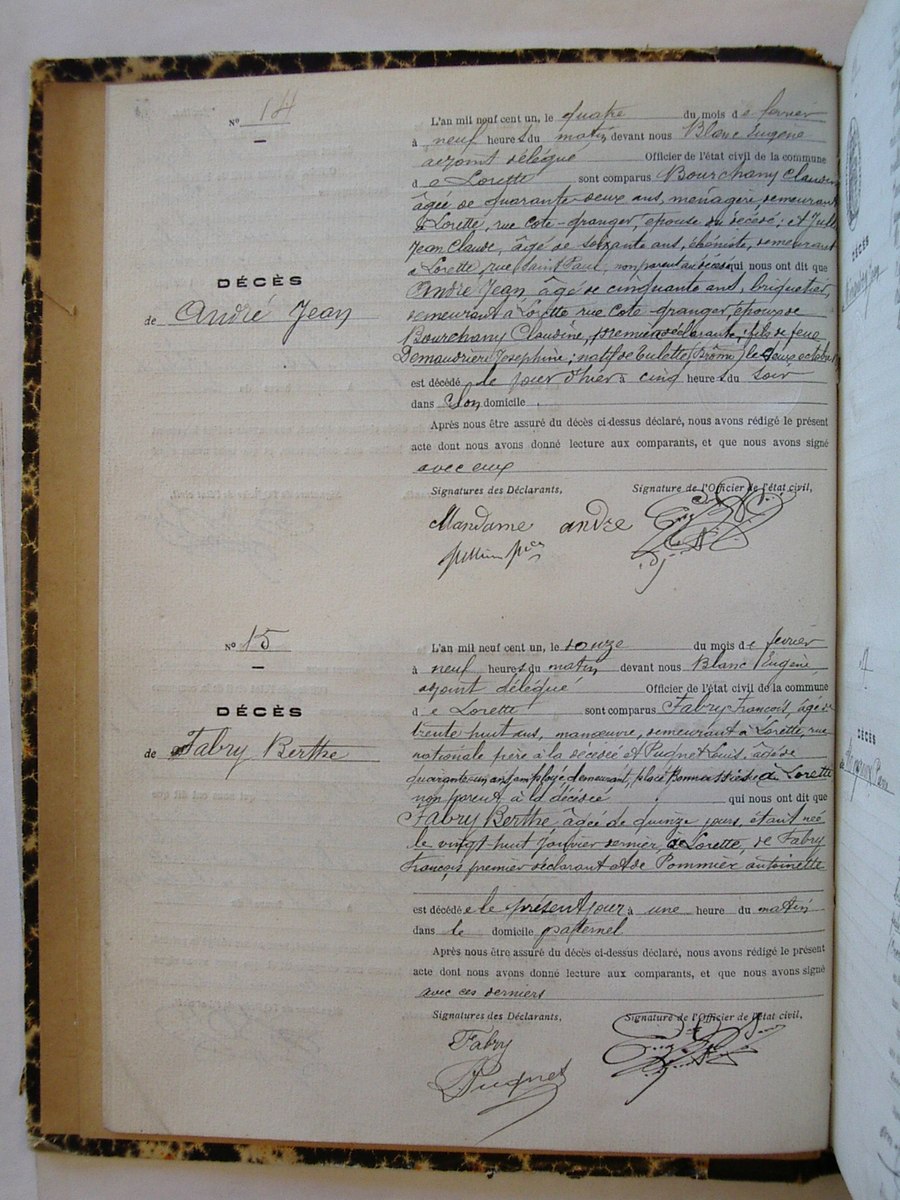 N° 14
DÉCÈS
de André Jean
L'an mil neuf cent un, le quatre du mois de fevrier
à neuf heures du matin devant nous Blanc Eugène
adjoint délégué Officier de l'état civil de la commune
de Lorette sont comparus Bourchany Claudine
âgée de quarante-deux ans, ménagère, demeurant
à Lorette, rue Cote-granger, épouse du décédé; et
Jean Claude, âgé de soixante ans, demeurant
à Lorette, rue Saint Paul, non parent au décédé qui nous ont dit que
André Jean âgé de cinquante ans, briquetier,
demeurant à Lorette rue Cote-granger, époux de
Bourchany Claudine, première déclarante; fils de feue
Demaudrière Josephine; natif de (Drôme) le deux octobre
est décédé le jour d'hier à cinq heures du soir
dans son domicile
Après nous être assuré du décès ci-dessus déclaré, nous avons rédigé le présent
acte dont nous avons donné lecture aux comparants, et que nous avons signé
avec eux
Signatures des Déclarants, Signature de l'Officier de l'état civil,
Mandame andre
N° 15
DÉCÈS
de Fabry Berthe
L'an mil neuf cent un, le douze du mois de fevrier
à neuf heures du matin devant nous Blanc Eugène
adjoint délégué Officier de l'état civil de la commune
de Lorette sont comparus Fabry François, âgé de
trente huit ans, manœuvre, demeurant à Lorette, rue
nationale père à la décédée et Puquet Louis, âgé de
quarante-un ans, employé demeurant, place à Lorette
non parent à la décédée qui nous ont dit que
Fabry Berthe âgée de quinze jours, étant née
le vingt huit Janvier dernier, à Lorette, de Fabry
François premier déclarant et de Pommier antoinette
est décédée le présent jour à une heure du matin
dans le domicile paternel
Après nous être assuré du décès ci-dessus déclaré, nous avons rédigé le présent
acte dont nous avons donné lecture aux comparants, et que nous avons signé
avec ces derniers
Signatures des Déclarants, Signature de l'Officier de l'état civil,
Fabry
Puquet
DÉCÈS
DÉCÈS